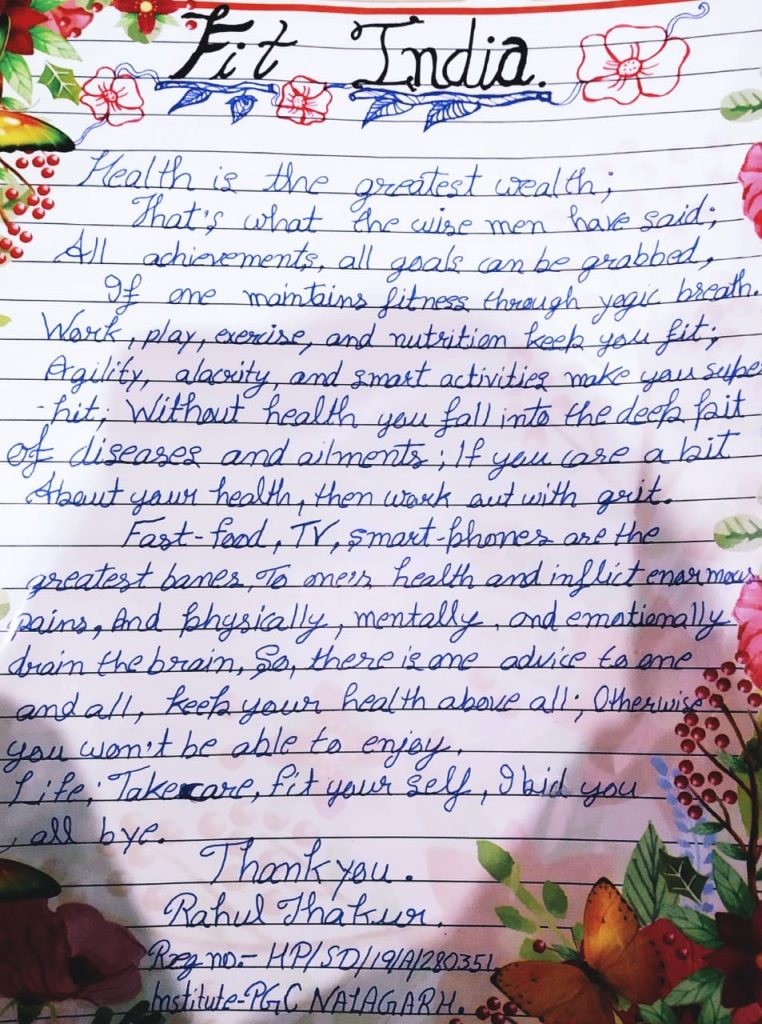 Fit India.
Health is the greatest wealth;
That's what the wise men have said;
All achievements, all goals can be grabbed,
If one maintains fitness through yogic breath.
Work, play, exercise, and nutrition keep you fit;
Agility, alacrity, and smart activities make you supe
-hit; Without health you fall into the deep pit
of diseases and ailments; If you care a bit
About your health, then work out with grit.
Fast-food, TV, smart-phones are the
greatest banes, To one's health and inflict enormous
pains, And physically, mentally, and emotionally
drain the brain, So, there is one advice to one
and all, keep your health above all; Otherwise
you won't be able to enjoy.
Life; Take care, fit your self, I bid you
, all bye.
Thank you.
Rahul Thakur.
Reg no:- HP/SD/19/A/280351
Institute-PGC NALAGARH.